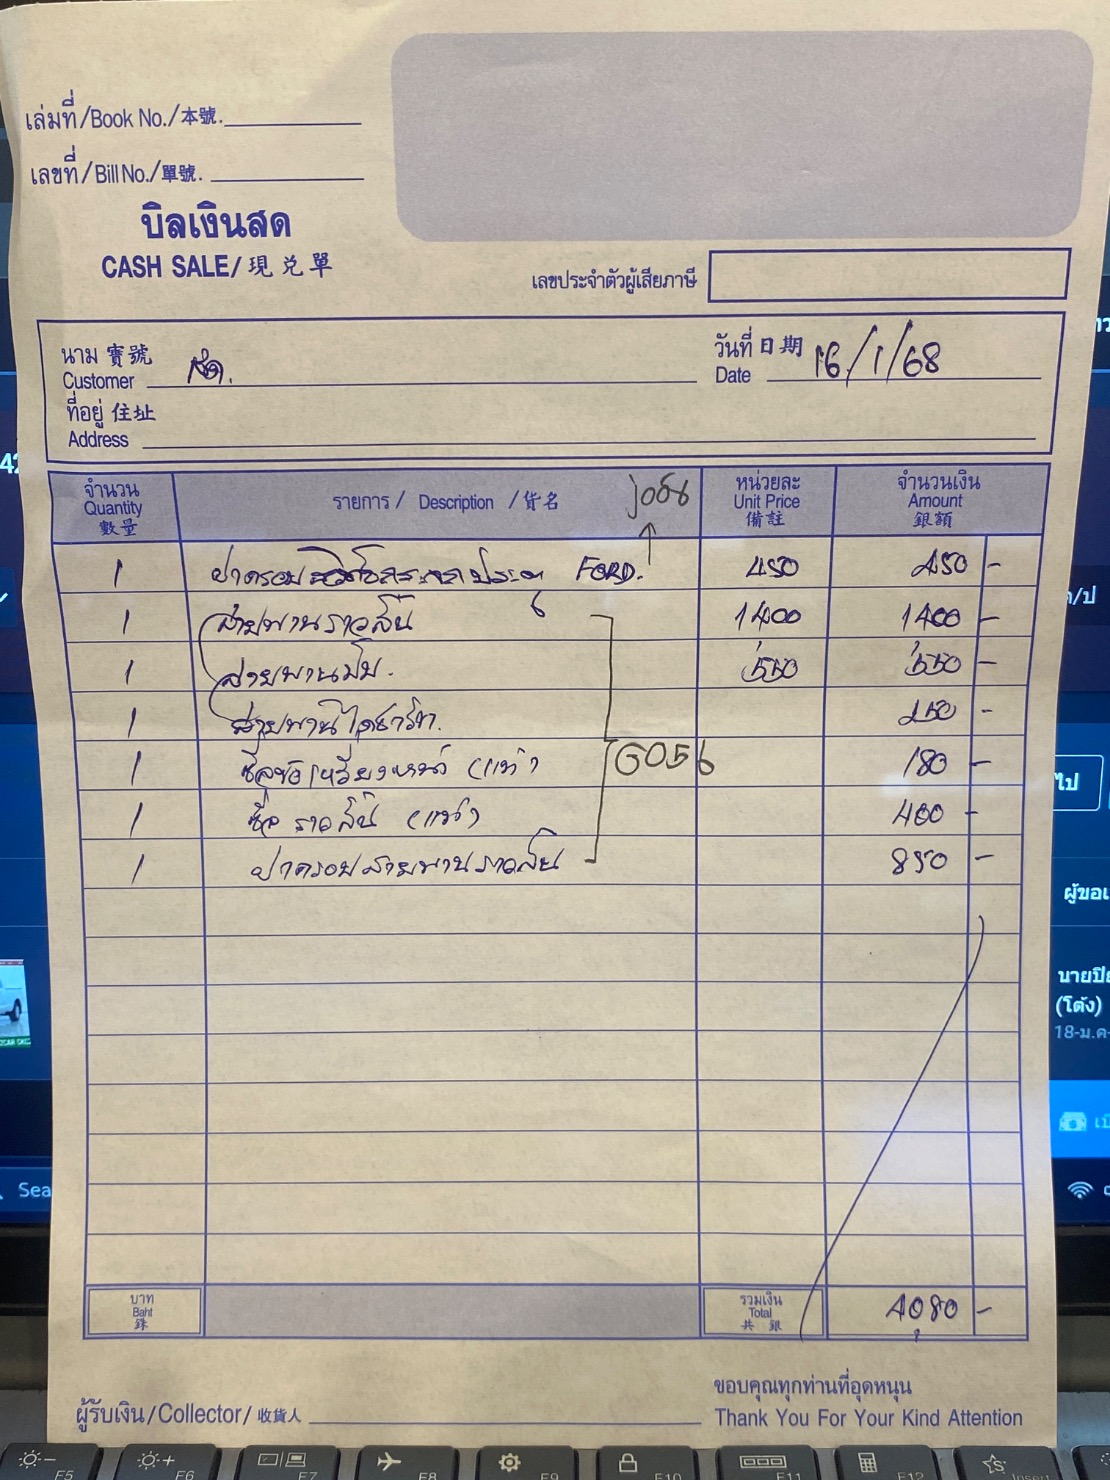 เล่มที่/Book No./本號.
เลขที่/Bill No./單號.
บิลเงินสด
CASH SALE/現兑單
เลขประจำตัวผู้เสียภาษี
นาม 寶號
Customer สด.
วันที่ 日期
Date 16/1/68
ที่อยู่ 住址
Address
จำนวน
Quantity
數量
รายการ / Description / 貨名
หน่วยละ
Unit Price
備註
จำนวนเงิน
Amount
銀額
1 ฝาครอบ FORD. 450 450 -
1 สายพานราวลิ้น 1400 1400 -
1 สายพานปั๊ม. 550 550 -
1 สายพานไดชาร์ท. 250 -
1 ซีลข้อเหวี่ยงหน้า (แท้) 180 -
1 ซีล ราวลิ้น (แท้) 400 -
1 ฝาครอบสายพานราวลิ้น 850 -
6056
บาท
Baht
銖
รวมเงิน
Total
共 銀
4080 -
ผู้รับเงิน/Collector/收貨人
ขอบคุณทุกท่านที่อุดหนุน
Thank You For Your Kind Attention
ไป
นายปิย
(โต้ง)
18-ม.ค-
Sea
F5
F6
F7
F8
F9
F10
F11
F12
Insert